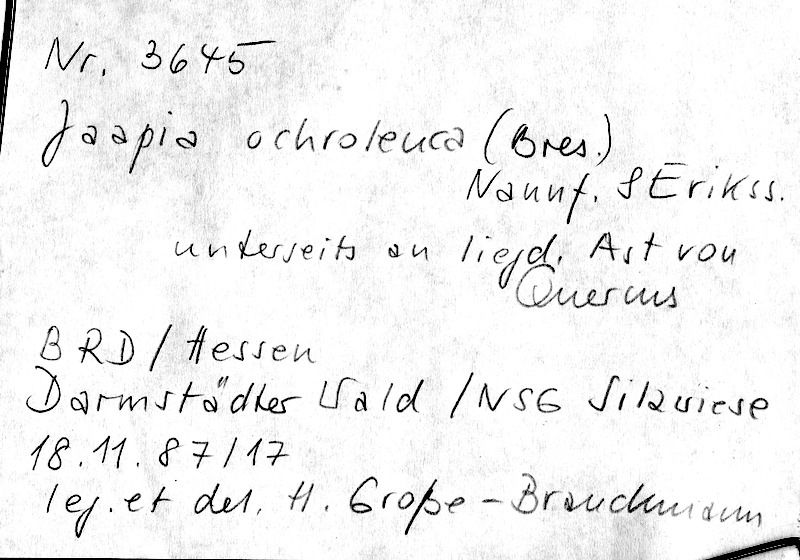 Nr. 3645
Jaapia ochroleuca (Bres.)
Nannf. & Erikss.
unterseits an liegd. Ast von
Quercus
BRD / Hessen
Darmstädter Wald / NSG Silzwiese
18.11.87/17
leg. et det. H. Große-Brauckmann